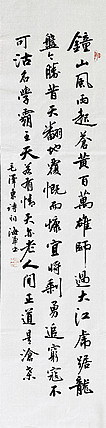 鐘山風雨起蒼黄百萬雄師過大江虎踞龍
盤今勝昔天翻地覆慨而慷宜將剩勇追窮寇不
可沽名學霸王天若有情天亦老人間正道是滄桑
毛澤東詩詞